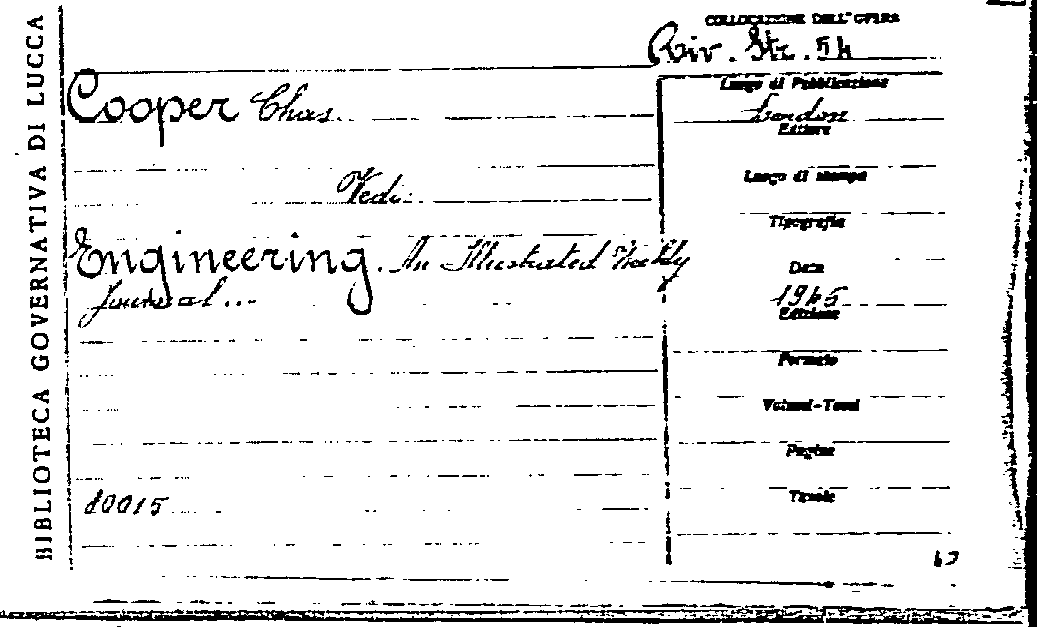 BIBLIOTECA GOVERNATIVA DI LUCCA
COLLOCAZIONE DELL'OPERA
Riv. Str. 54
Cooper Chas.
Luogo di Pubblicazione
London
Editore
Luogo di stampa
Vedi:
Tipografia
Engineering. An Illustrated Weekly
Journal...
Data
1945
Edizione
Formato
Volumi-Tomi
Pagine
Tavole